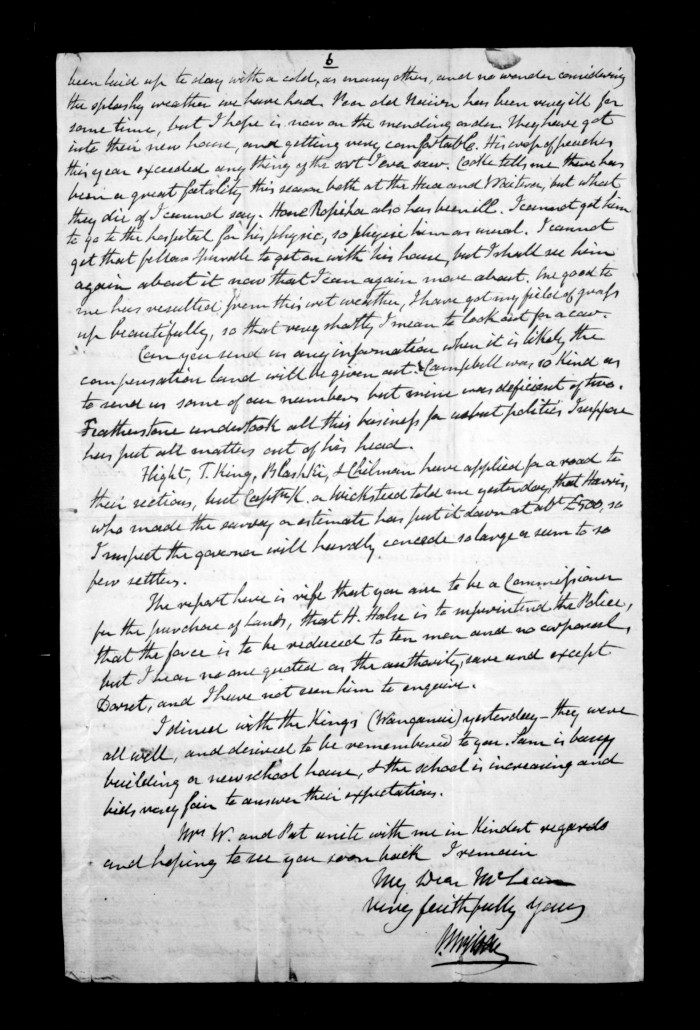 6
been laid up to day with a cold, as many others, and no wonder considering
the splashy weather we have had. Poor old has been very ill for
some time, but I hope is now on the mending order. They have got
into their new house, and getting very comfortable. His crop of peaches
this year exceeded any thing of the sort I ever saw. Cooke tells me there has
been a great fatality this season both at the Hua and Waitara, but what
they die of I cannot say. Hone Ropiha also has been ill. I cannot get him
to go to the hospital for his physic, so physic him as usual. I cannot
get that fellow to get on with his house, but I shall see him
again about it now that I can again move about. One good to
me has resulted from this wet weather, I have got my field of grass
up beautifully, so that very shortly I mean to look out for a cow.
Can you send us any information when it is likely the
compensation land will be given out. Campbell was so kind as
to send us some of our numbers but mine was deficient of two.
Featherstone undertook all this business for us but politics I suppose
has put all matters out of his head.
Flight, T. King, Blaschke, & Chilman have applied for a road to
their sections, but Capt K. or Wicksteed told me yesterday, that Harris,
who made the survey or estimate has put it down at abt £500, so
I suspect the governor will hardly concede so large a sum to so
few settlers.
The report here is rife that you are to be a Commissioner
for the purchase of Lands, that H. Halse is to superintend the Police,
that the force is to be reduced to ten men and no corporal,
but I hear no one quoted as the authority, save and except
Dorset, and I have not seen him to enquire.
I dined with the Kings (Wanganui) yesterday - they were
all well, and desired to be remembered to you. Sam is busy
building a new school house, & the school is increasing and
bids very fair to answer their expectations.
Mrs W. and Pat unite with me in Kindest regards
and hoping to see you soon back I remain
My Dear McLean
very faithfully Yours
P. Wilson